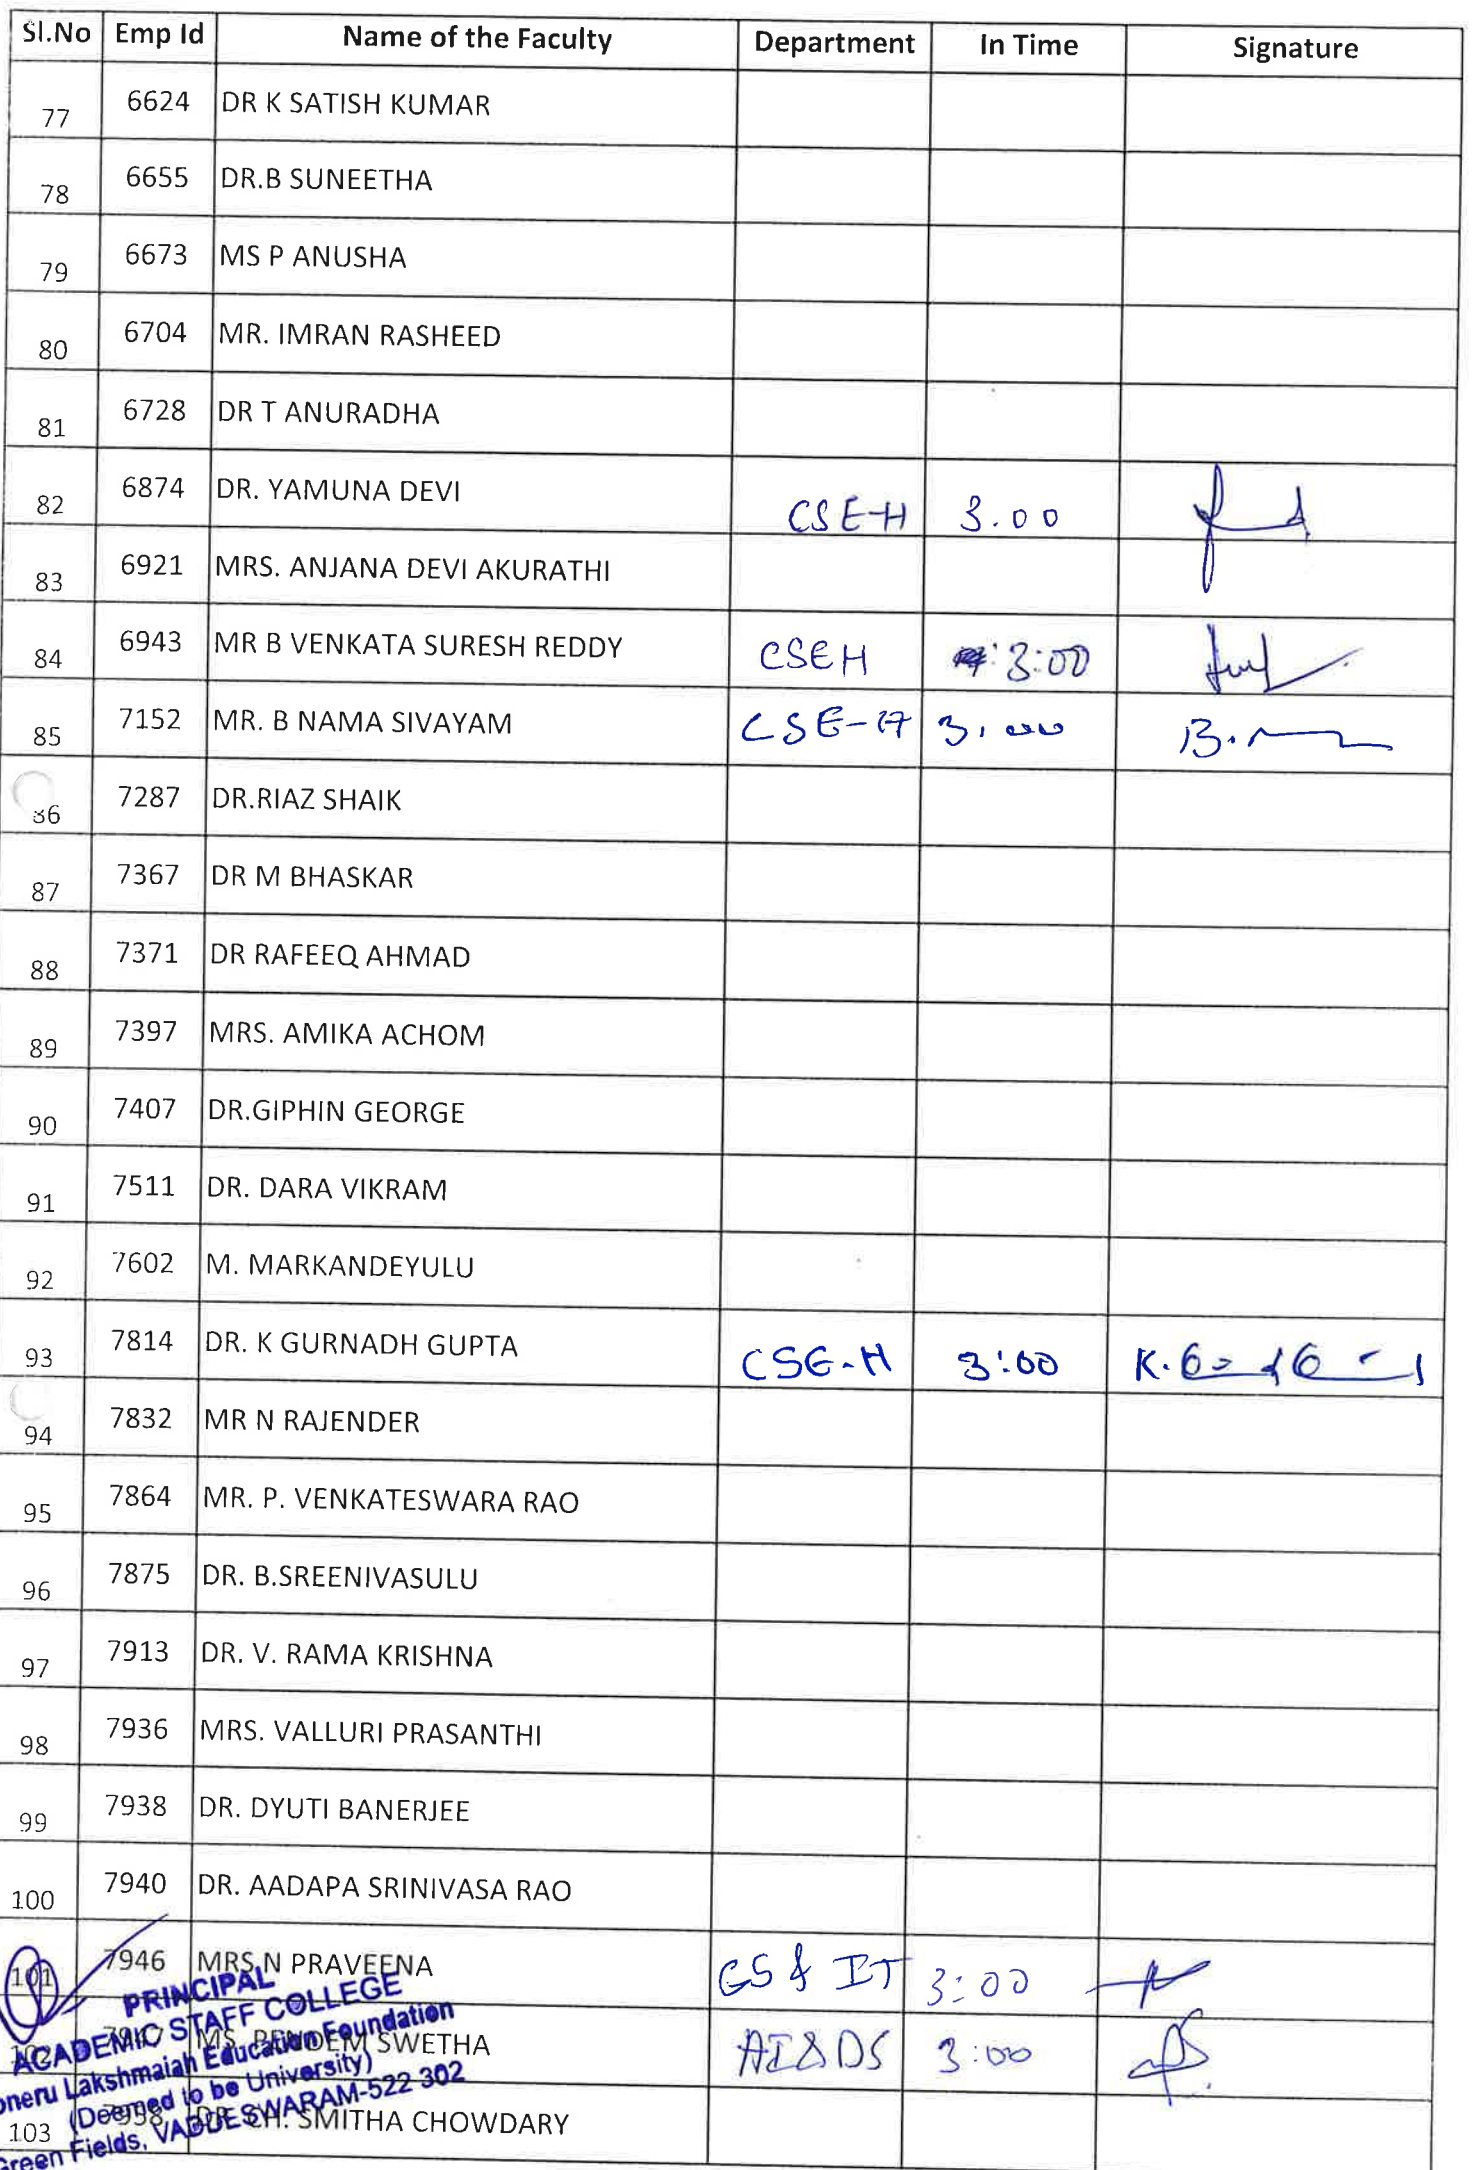 Sl.No Emp Id Name of the Faculty Department In Time Signature
77 6624 DR K SATISH KUMAR
78 6655 DR.B SUNEETHA
79 6673 MS P ANUSHA
80 6704 MR. IMRAN RASHEED
81 6728 DR T ANURADHA
82 6874 DR. YAMUNA DEVI CSE-H 3.00
83 6921 MRS. ANJANA DEVI AKURATHI
84 6943 MR B VENKATA SURESH REDDY CSEH 3:00
85 7152 MR. B NAMA SIVAYAM CSE-H 3.00
86 7287 DR.RIAZ SHAIK
87 7367 DR M BHASKAR
88 7371 DR RAFEEQ AHMAD
89 7397 MRS. AMIKA ACHOM
90 7407 DR.GIPHIN GEORGE
91 7511 DR. DARA VIKRAM
92 7602 M. MARKANDEYULU
93 7814 DR. K GURNADH GUPTA CSE-H 3:00
94 7832 MR N RAJENDER
95 7864 MR. P. VENKATESWARA RAO
96 7875 DR. B.SREENIVASULU
97 7913 DR. V. RAMA KRISHNA
98 7936 MRS. VALLURI PRASANTHI
99 7938 DR. DYUTI BANERJEE
100 7940 DR. AADAPA SRINIVASA RAO
101 7946 MRS N PRAVEENA CS & IT 3:00
102 7947 MS. PENDEM SWETHA AI&DS 3:00
103 7958 DR. CH. SMITHA CHOWDARY
PRINCIPAL
ACADEMIC STAFF COLLEGE
oneru Lakshmaiah Education Foundation
(Deemed to be University)
Green Fields, VADDESWARAM-522 302